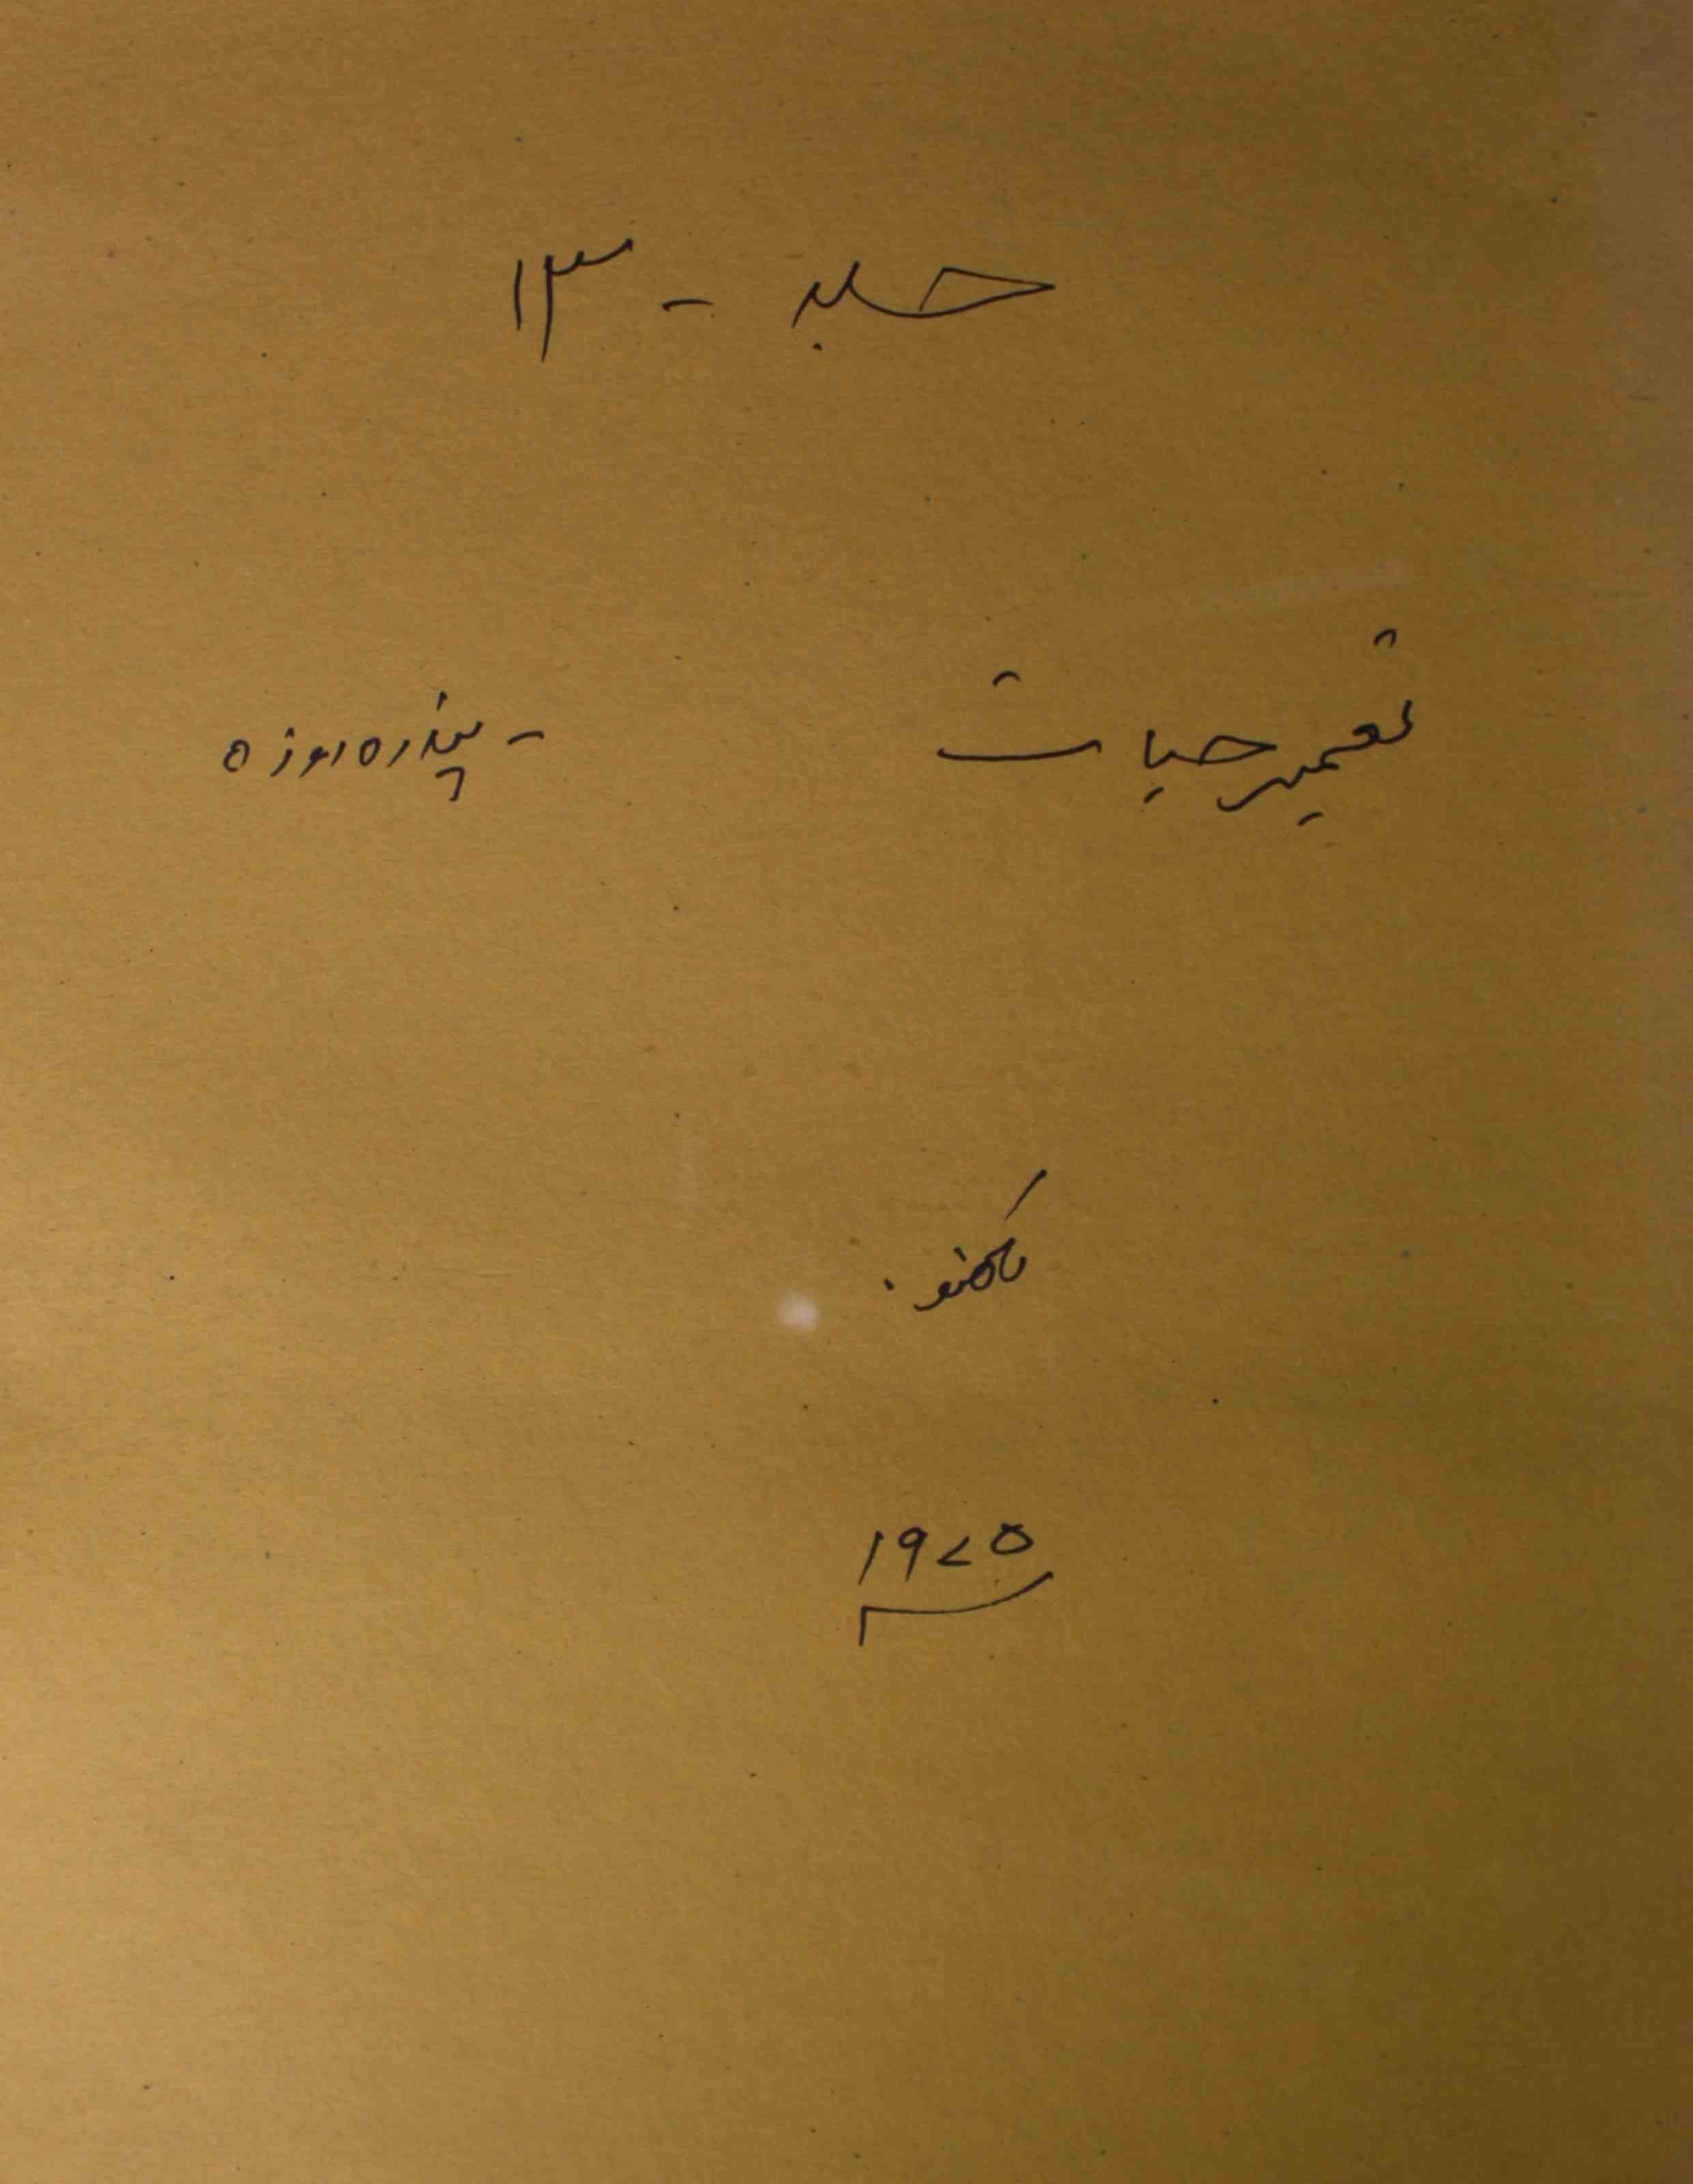 جلد - ۱۳
تعمیر حیات - پندرہ روزہ
لکھنو.
۱۹۷۵